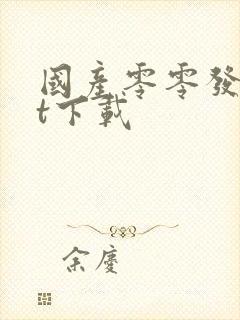 國產零零發
t下載
余慶